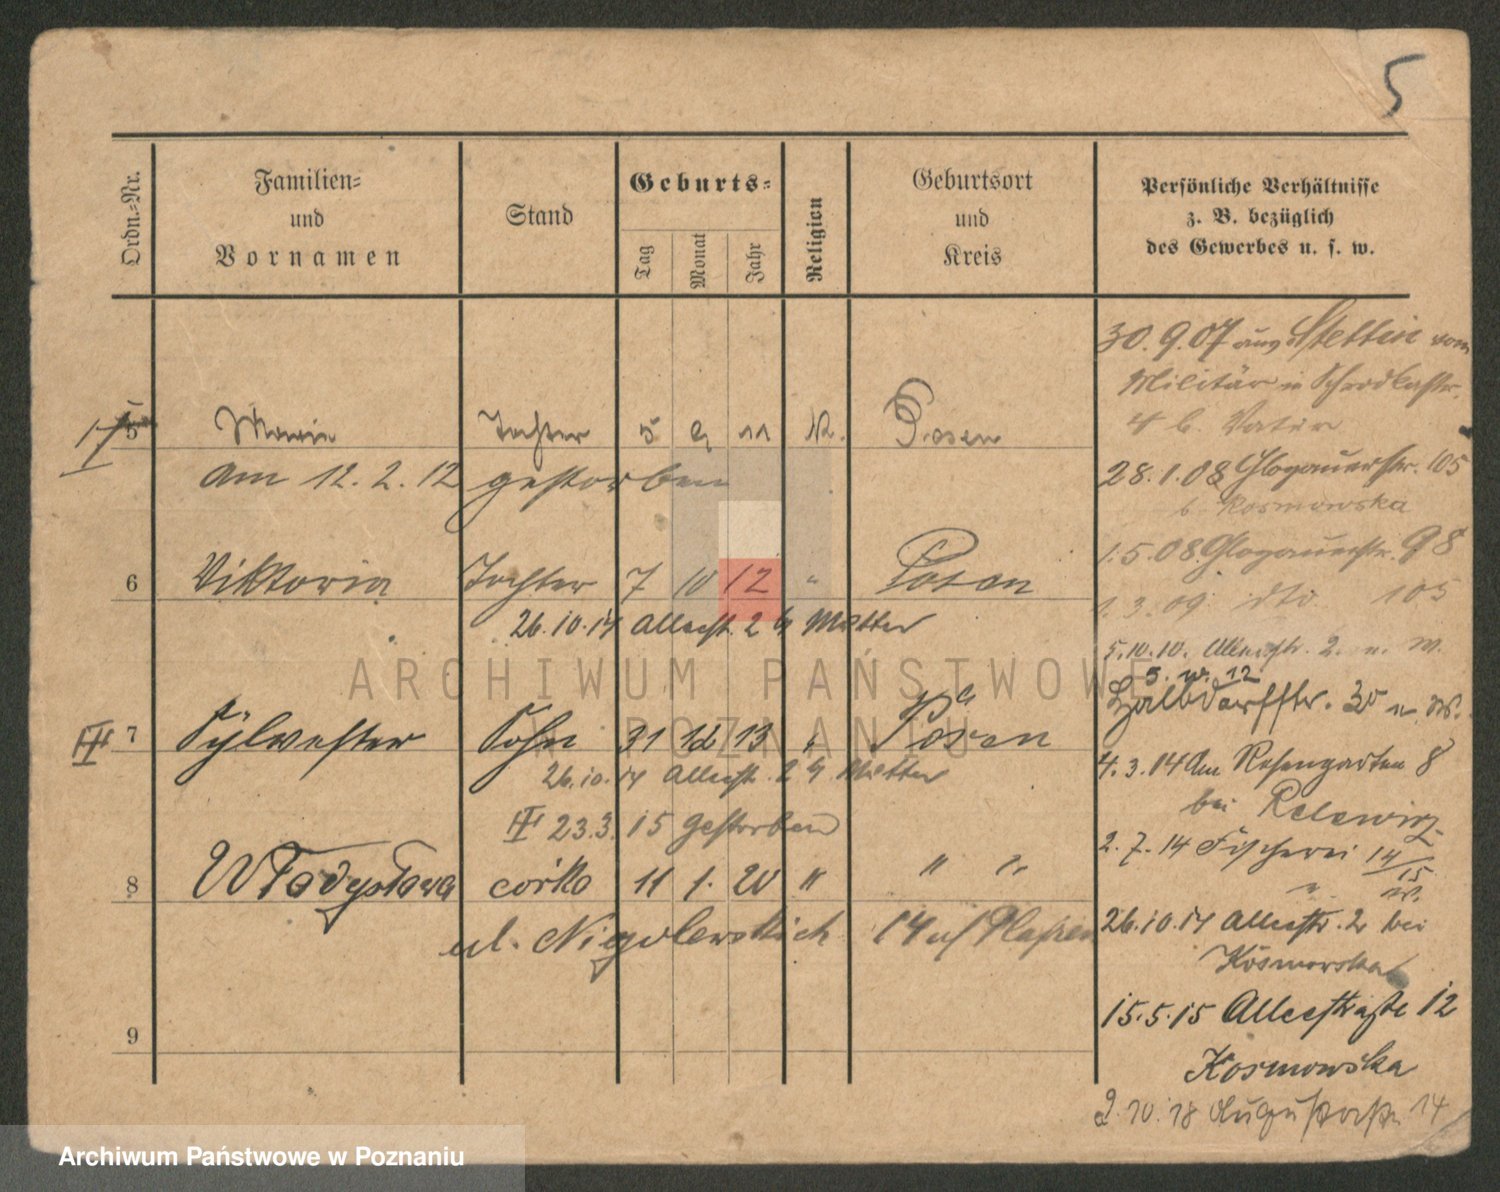 5
Ordn.-Nr.
Familien-
und
Vornamen
Stand
Geburts-
Tag
Monat
Jahr
Religion
Geburtsort
und
Kreis
Persönliche Verhältnisse
z. B. bezüglich
des Gewerbes u. s. w.
5 Maria Tochter 5 9 11 Posen
am 12. 2. 12 gestorben
6 Viktoria Tochter 7 10 12 " Posen
26.10.14 Alleestr. 2 b Mutter
7 Sylvester Sohn 31 12 13 " Posen
26.10.14 Alleestr. 2 b Mutter
23.3.15 gestorben
8 Władysława córka 11 1. 20 " " "
ul. Niegolewskich 14
9
30.9.07 aus Stettin vom
Militär in Schrodkastr.
4 b. Vater
28.1.08 Glogauerstr. 105
b. Kosmowska
1.5.08 Glogauerstr. 98
1.3.09 dto 105
5.10.10. Alleestr. 2. n. W.
5. IV. 12
Halbdorffstr. 30 n. W.
4.3.14 Am Rosengarten 8
bei
2.7.14 Fischerei 14/15
26.10.14 Alleestr. 2 bei
Kosmowska
15.5.15 Alleestraße 12
Kosmowska
2.10.18 Augustastr. 14
ARCHIWUM PAŃSTWOWE
W POZNANIU
Archiwum Państwowe w Poznaniu